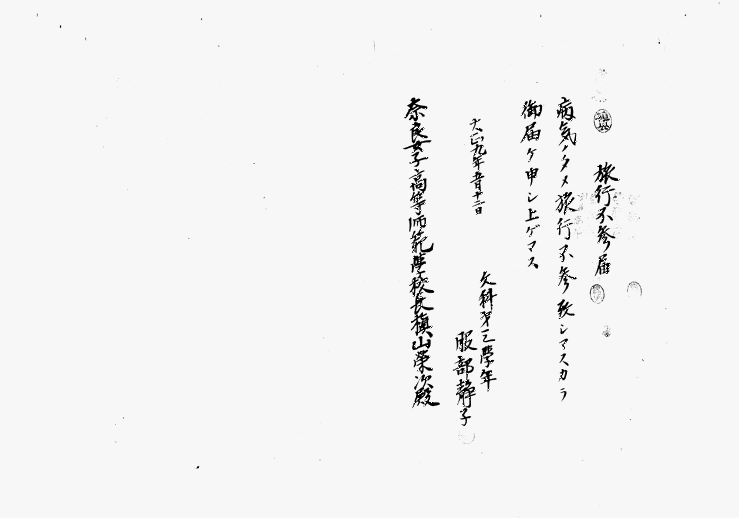 旅行不参届
病気ノタメ旅行不参致シマスカラ
御届ケ申シ上ゲマス
大正九年五月十二日
文科第三學年
服部静子
奈良女子高等師範學校長槇山榮次殿